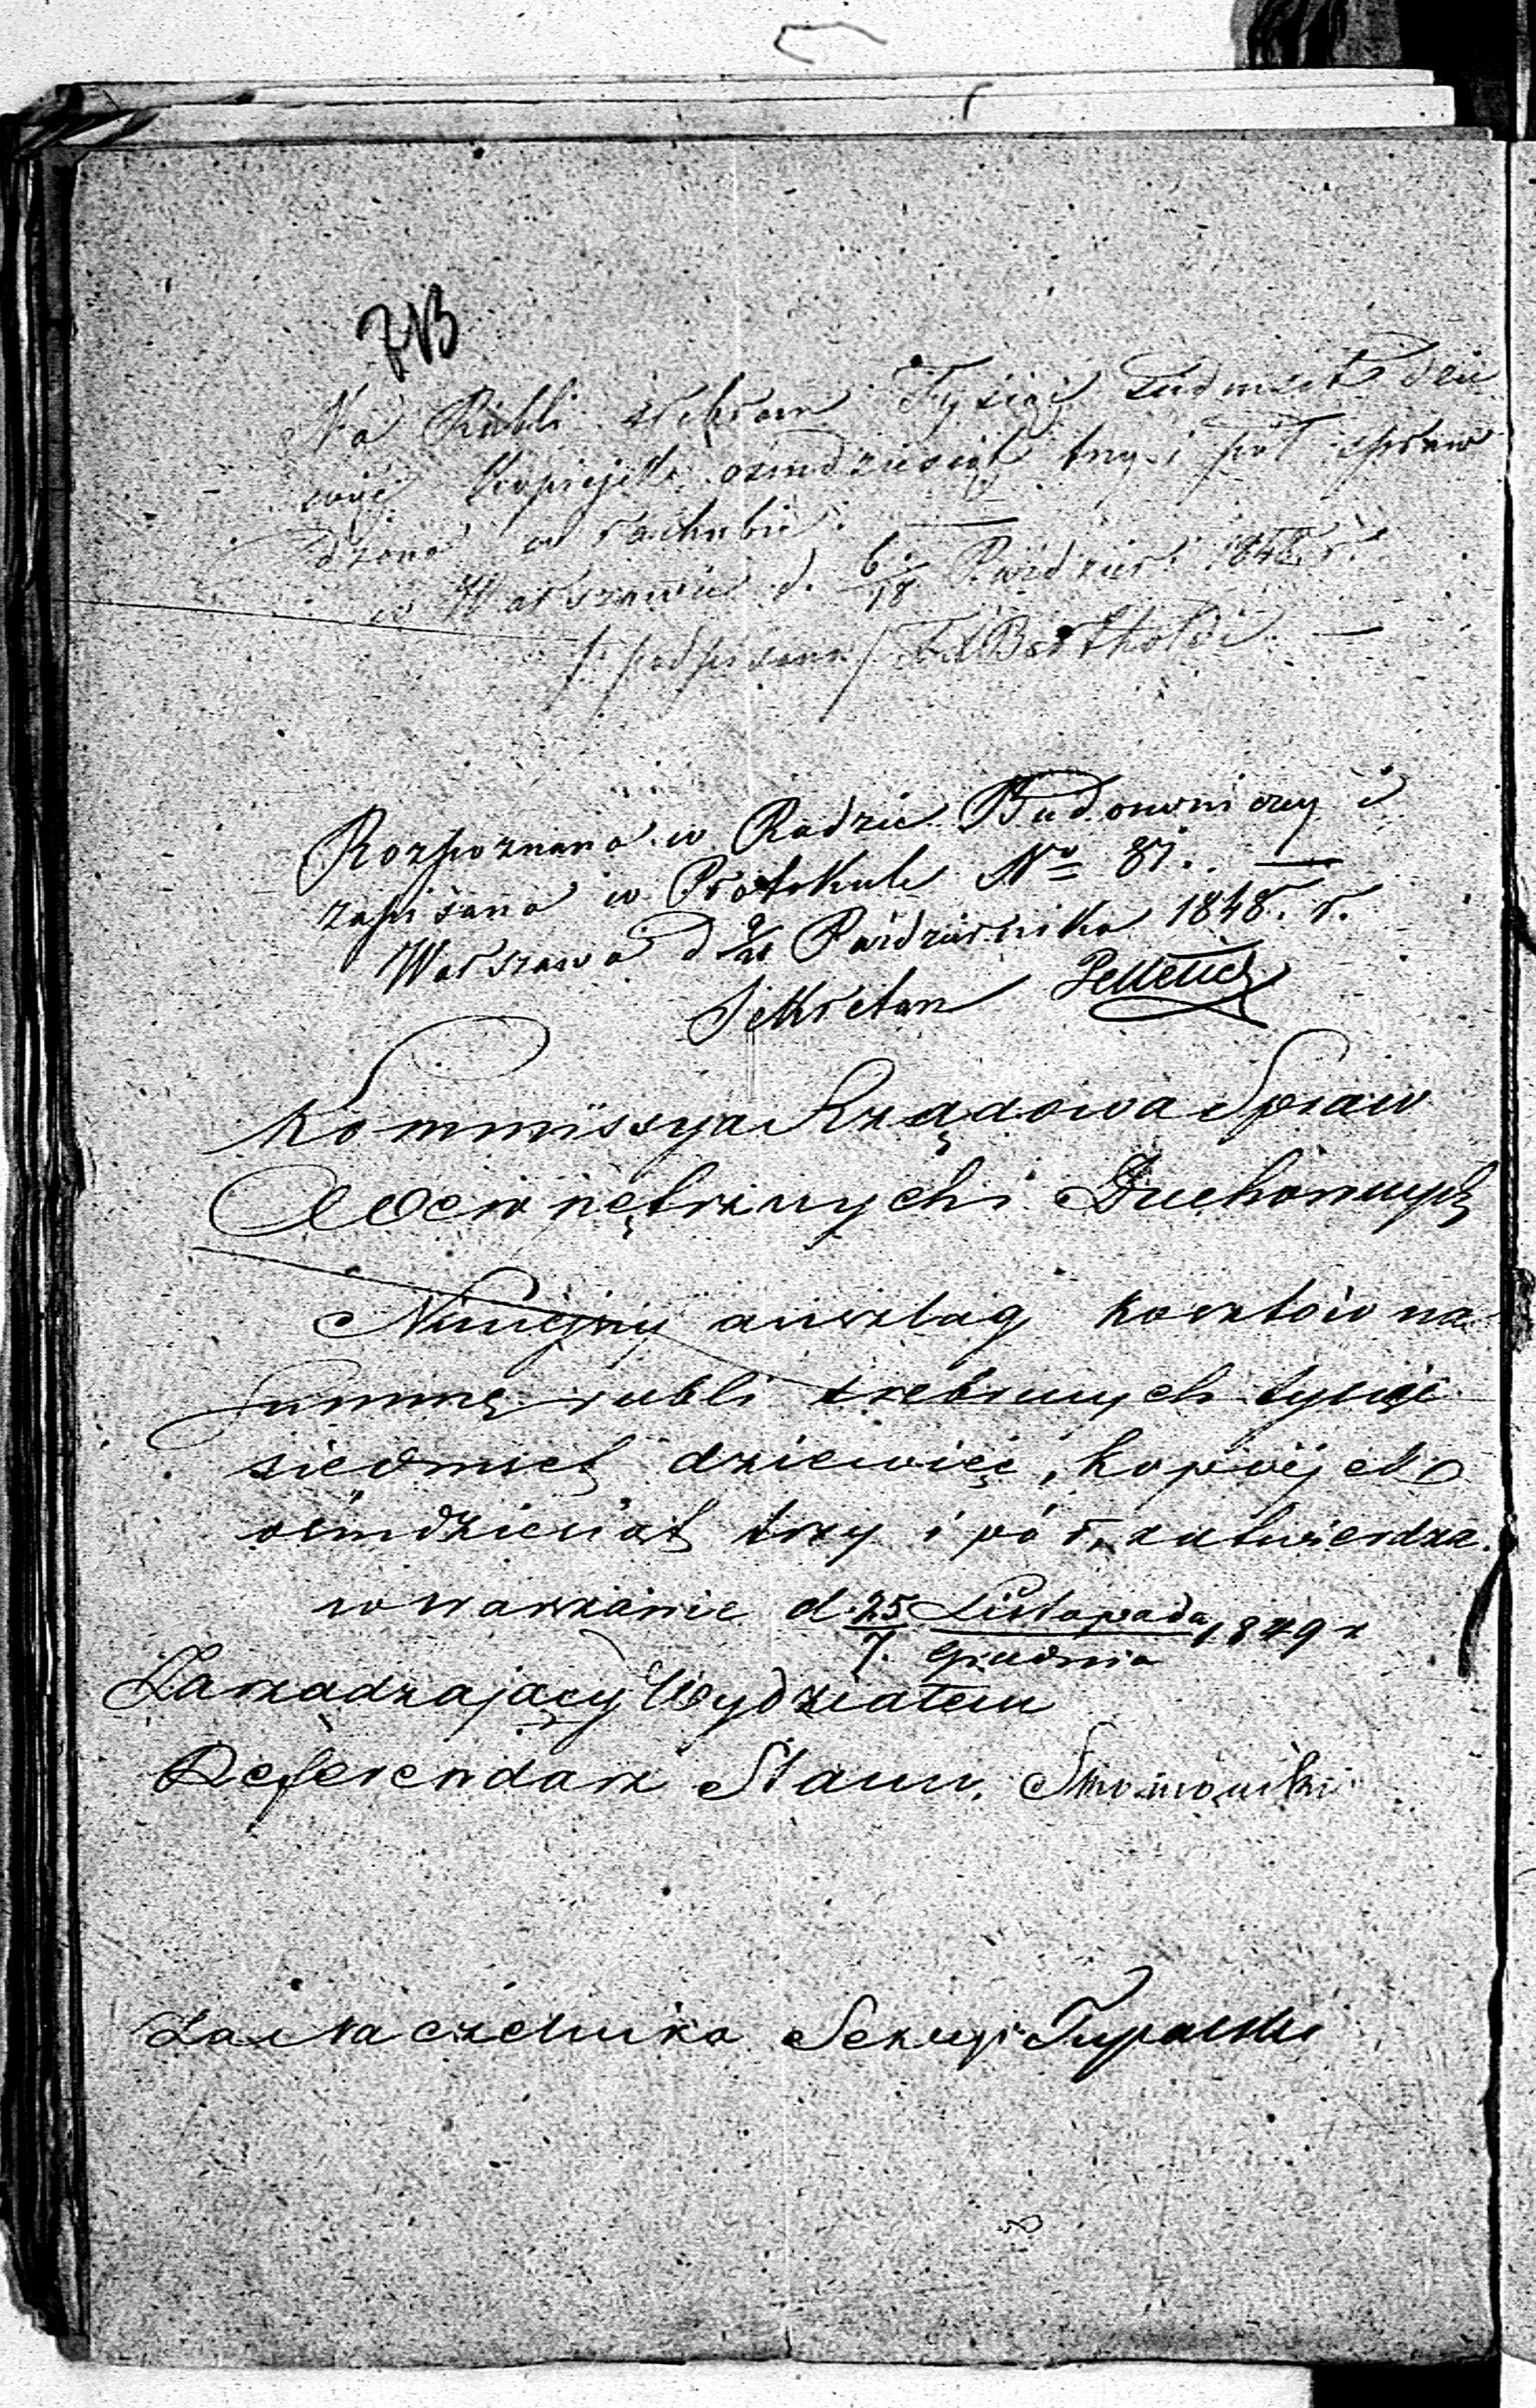 713
Na Rubli srebrem Tysiąc siedmset dzie
więć kopiejek osmdziesiąt trzy i pół spraw
dzono w rachubie.
w Warszawie d. 6/18 Paździer: 1848 r.
/: podpisano / Bertholdi
Rozpoznano w Radzie Budowniczy i
zapisano w Protokule No 87.
Warszawa d 9/21 Października 1848. r.
Sekretarz
Kommissya Rządowa Spraw
Wewnętrznych i Duchownych
Niniejszy anszlag kosztów na
summę rubli srebrnych tysiąc
siedmset dziewięć, kopiejek
ośmdziesiąt trzy i pół, zatwierdza.
w Warszawie d. 25 Listopada/7. Grudnia 1849 r
Zarządzający Wydziałem
Referendarz Stanu.
Za Naczelnika Sekcyi Tupalski